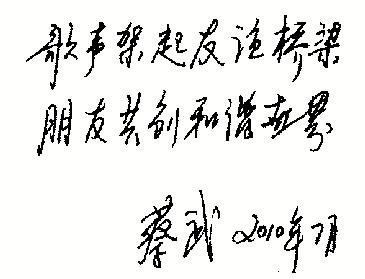 歌声架起友谊桥梁
朋友共创和谐世界
蔡武 2010年7月